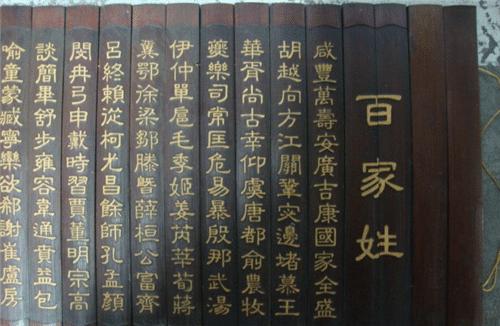 百家姓
咸豐萬壽安廣吉康國家全盛
胡越向方江關鞏邊堵慕王
華胥尚古幸仰虞唐都俞農牧
夔樂司常匡危易暴殷那武湯
伊仲單扈毛季姬姜芮莘荀蔣
冀鄂徐梁鄒滕暨薛桓公富齊
呂終賴從柯尤昌餘師孔孟顏
閔冉弓申戴時習賈董明宗高
談簡畢舒步雍容韋通貢益包
喻童蒙臧寧欒欲郝謝崔盧房